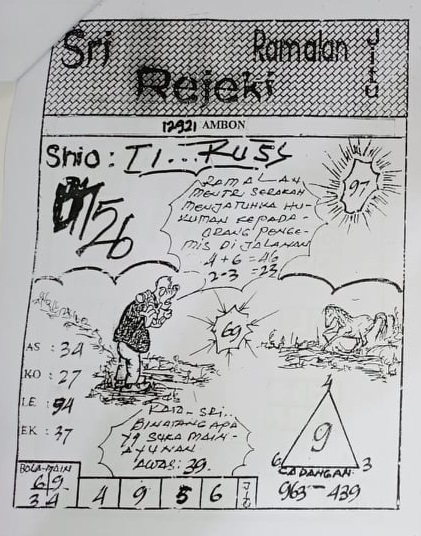 Sri
Ramalan
Jitu
Rejeki
12921 AMBON
Shio: TI...KUSS
RAMALAN
MENTRI SERAKAH
MENJATUHKA HU-
KUMAN KEPADA-
ORANG PENGE-
MIS DI JALANAN
4+6=46
2-3=23
97
26
69
AS : 34
KO : 27
LE : 94
EK : 37
KATA-SRI..
BINATANG APA
YG SUKA MAIN-
AYUNAN
AWAS: 39.
4
9
6
3
CADANGAN
963-439
BOLA-MAIN
69
34
4 9 5 6